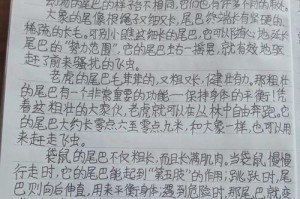 动物的尾巴的样子不相同,它们也有许多不同的用处。
大象的尾像根绳子又细又长,尾巴的端长有坚硬的、
稀疏的长毛。可别小瞧这细长的尾巴,它可以
尾巴的“势力范围”,它的尾巴左右一摇晃,就有效地驱
赶了前来骚扰的飞虫。
老虎的尾巴毛茸茸的,又粗又长,健壮有力。那粗壮
的尾巴有一个非常重要的功能——保持身体的平衡!凭
着这粗壮的大家伙,老虎就可以在丛林中自由奔跑。它
的尾巴大约长零点六至零点九米,和大象一样,也可以用
来赶走飞虫。
袋鼠的尾巴不仅粗长,而且长满肌肉。当袋鼠慢慢
行走时,它的尾巴能起到“第五皮”的作用;跳跃时,尾
巴则向后伸直,用来平衡身体;遇到危险时,那尾巴就变